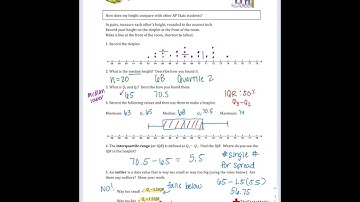 How does my height compare with other AP Stats students?
In pairs, measure each other's height, rounded to the nearest inch.
Record your height on the dotplot at the front of the room.
Form a line at the front of the room, shortest to tallest.
1. Record the dotplot.
2. What is the median height? Describe how you found it.
n=20 68 Quartile 2
3. What is Q1 and Q3? Describe how you found them.
median lower
65 70.5
IQR: 50%
Q3-Q1
4. Record the following values and then use them to make a boxplot.
Minimum: 63 Q1: 65 Median: 68 Q3: 70.5 Maximum: 74
5. The interquartile range (or IQR) is defined as Q3 - Q1. Find the IQR. Where do you see the
IQR in the boxplot?
70.5 - 65 = 5.5
*single #
for spread
6. An outlier is a data value that is way too small or way too big (using the rules below). Are
there any outliers? Show your work.
NO!
Way too small
falls below
65-1.5(5.5)
56.75
Way too big